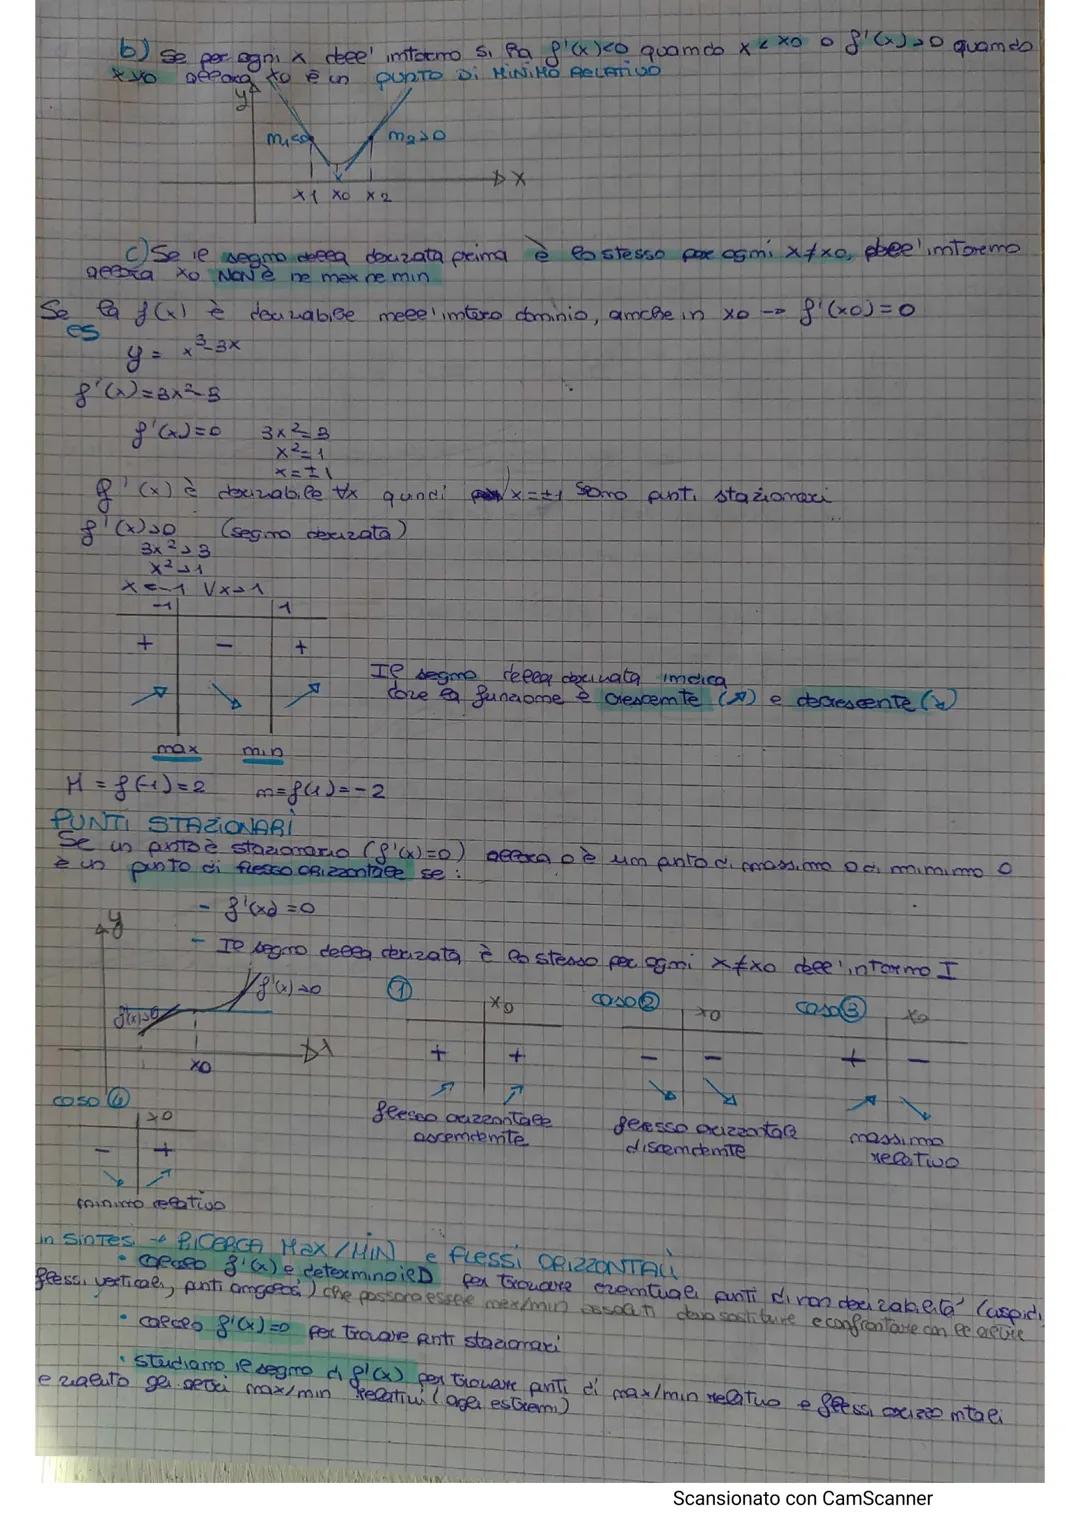 b) Se per ogni x dell' intorno si ha f'(x)<0 quando x < x0 o f'(x)>0 quando
x>x0 allora x0 è un PUNTO DI MINIMO RELATIVO
y
m1<0
m2>0
x
x1 x0 x2
c) Se il segno della derivata prima è lo stesso per ogni x≠x0, dell'intorno
allora x0 NON È ne max ne min
Se la f(x) è derivabile nell'intero dominio, anche in x0 → f'(x0)=0
es
y = x³-3x
f'(x)=3x²-3
f'(x)=0 3x²=3
x²=1
x=±1
f'(x) è derivabile ∀x quindi x=±1 sono punti stazionari
f'(x)>0 (segno derivata)
3x²>3
x²>1
x<-1 V x>1
-1 1
+ - +
Il segno della derivata indica
dove la funzione è crescente (↗) e decrescente (↘)
max min
M = f(-1)=2 m=f(1)=-2
PUNTI STAZIONARI
Se un punto è stazionario (f'(x)=0) allora o è un punto di massimo o di minimo o
è un punto di flesso orizzontale se:
- f'(x0)=0
- Il segno della derivata è lo stesso per ogni x≠x0 dell'intorno I
y
f'(x)>0
f'(x)>0
x0
x
① x0
+ +
flesso orizzontale
ascendente
caso ② x0
- -
flesso orizzontale
discendente
caso ③ x0
+ -
massimo
relativo
caso ④
x0
- +
minimo relativo
in sintesi → RICERCA MAX/MIN e FLESSI ORIZZONTALI
• calcolo f'(x) e determino il D per trovare eventuali punti di non derivabilità (cuspidi,
flessi verticali, punti angolosi) che possono essere max/min assoluti devo sostituire e confrontare con le altre
• calcolo f'(x)=0 per trovare punti stazionari
• studiamo il segno di f'(x) per trovare punti di max/min relativo e flessi orizzontali
e valuto gli max/min relativi (agli estremi)
Scansionato con CamScanner